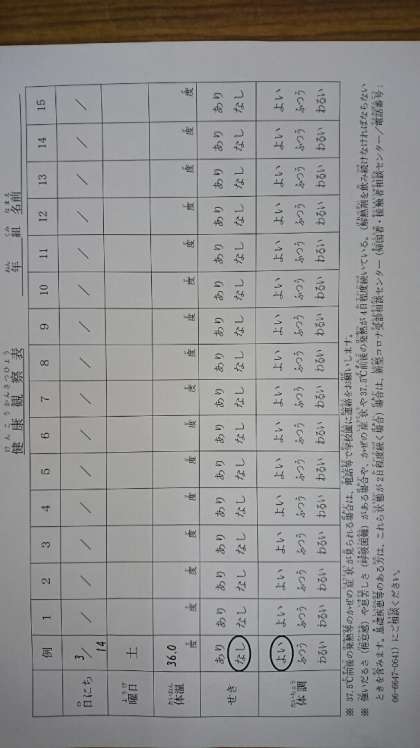 健康観察表　年　組　名前
例 1 2 3 4 5 6 7 8 9 10 11 12 13 14 15
日にち 3/14 / / / / / / / / / / / / / / /
曜日 土
体温 36.0度 度 度 度 度 度 度 度 度 度 度 度 度 度 度 度
せき あり あり あり あり あり あり あり あり あり あり あり あり あり あり あり あり
なし なし なし なし なし なし なし なし なし なし なし なし なし なし なし なし
体調 よい よい よい よい よい よい よい よい よい よい よい よい よい よい よい よい
ふつう ふつう ふつう ふつう ふつう ふつう ふつう ふつう ふつう ふつう ふつう ふつう ふつう ふつう ふつう ふつう
わるい わるい わるい わるい わるい わるい わるい わるい わるい わるい わるい わるい わるい わるい わるい わるい
※ 37.5℃前後の発熱等のかぜの症状が見られる場合は、電話等で学校園に連絡をお願いします。
※ 強いだるさ（倦怠感）や息苦しさ（呼吸困難）がある場合や、かぜの症状や37.5℃前後の発熱が4日程度続いている。（解熱剤を飲み続けなければならない
ときを含みます。基礎疾患等のある方は、これら状態が2日程度続く場合）場合は、新型コロナ受診相談センター（帰国者・接触者相談センター／電話番号：
06-6647-0641）にご相談ください。